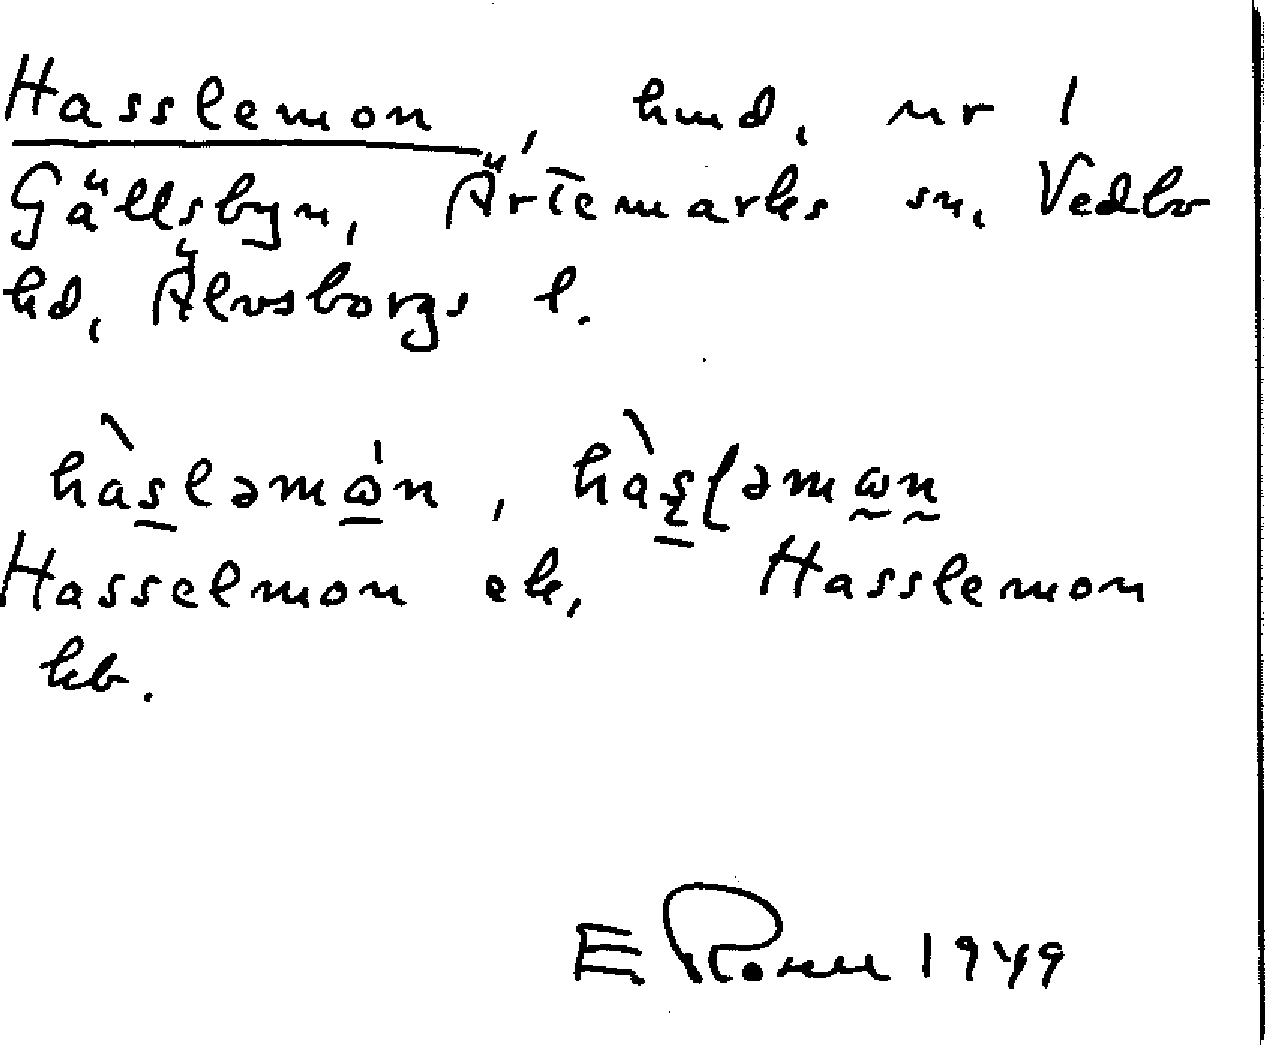 Hasslemon, hmd, nr 1
Gällsbyn, Ärtemarks sn, Vedbo
hd, Älvsborgs l.
hàsləmὼn, hàsləmωn
Hasselmon ek, Hasslemon
kb.
E 1949